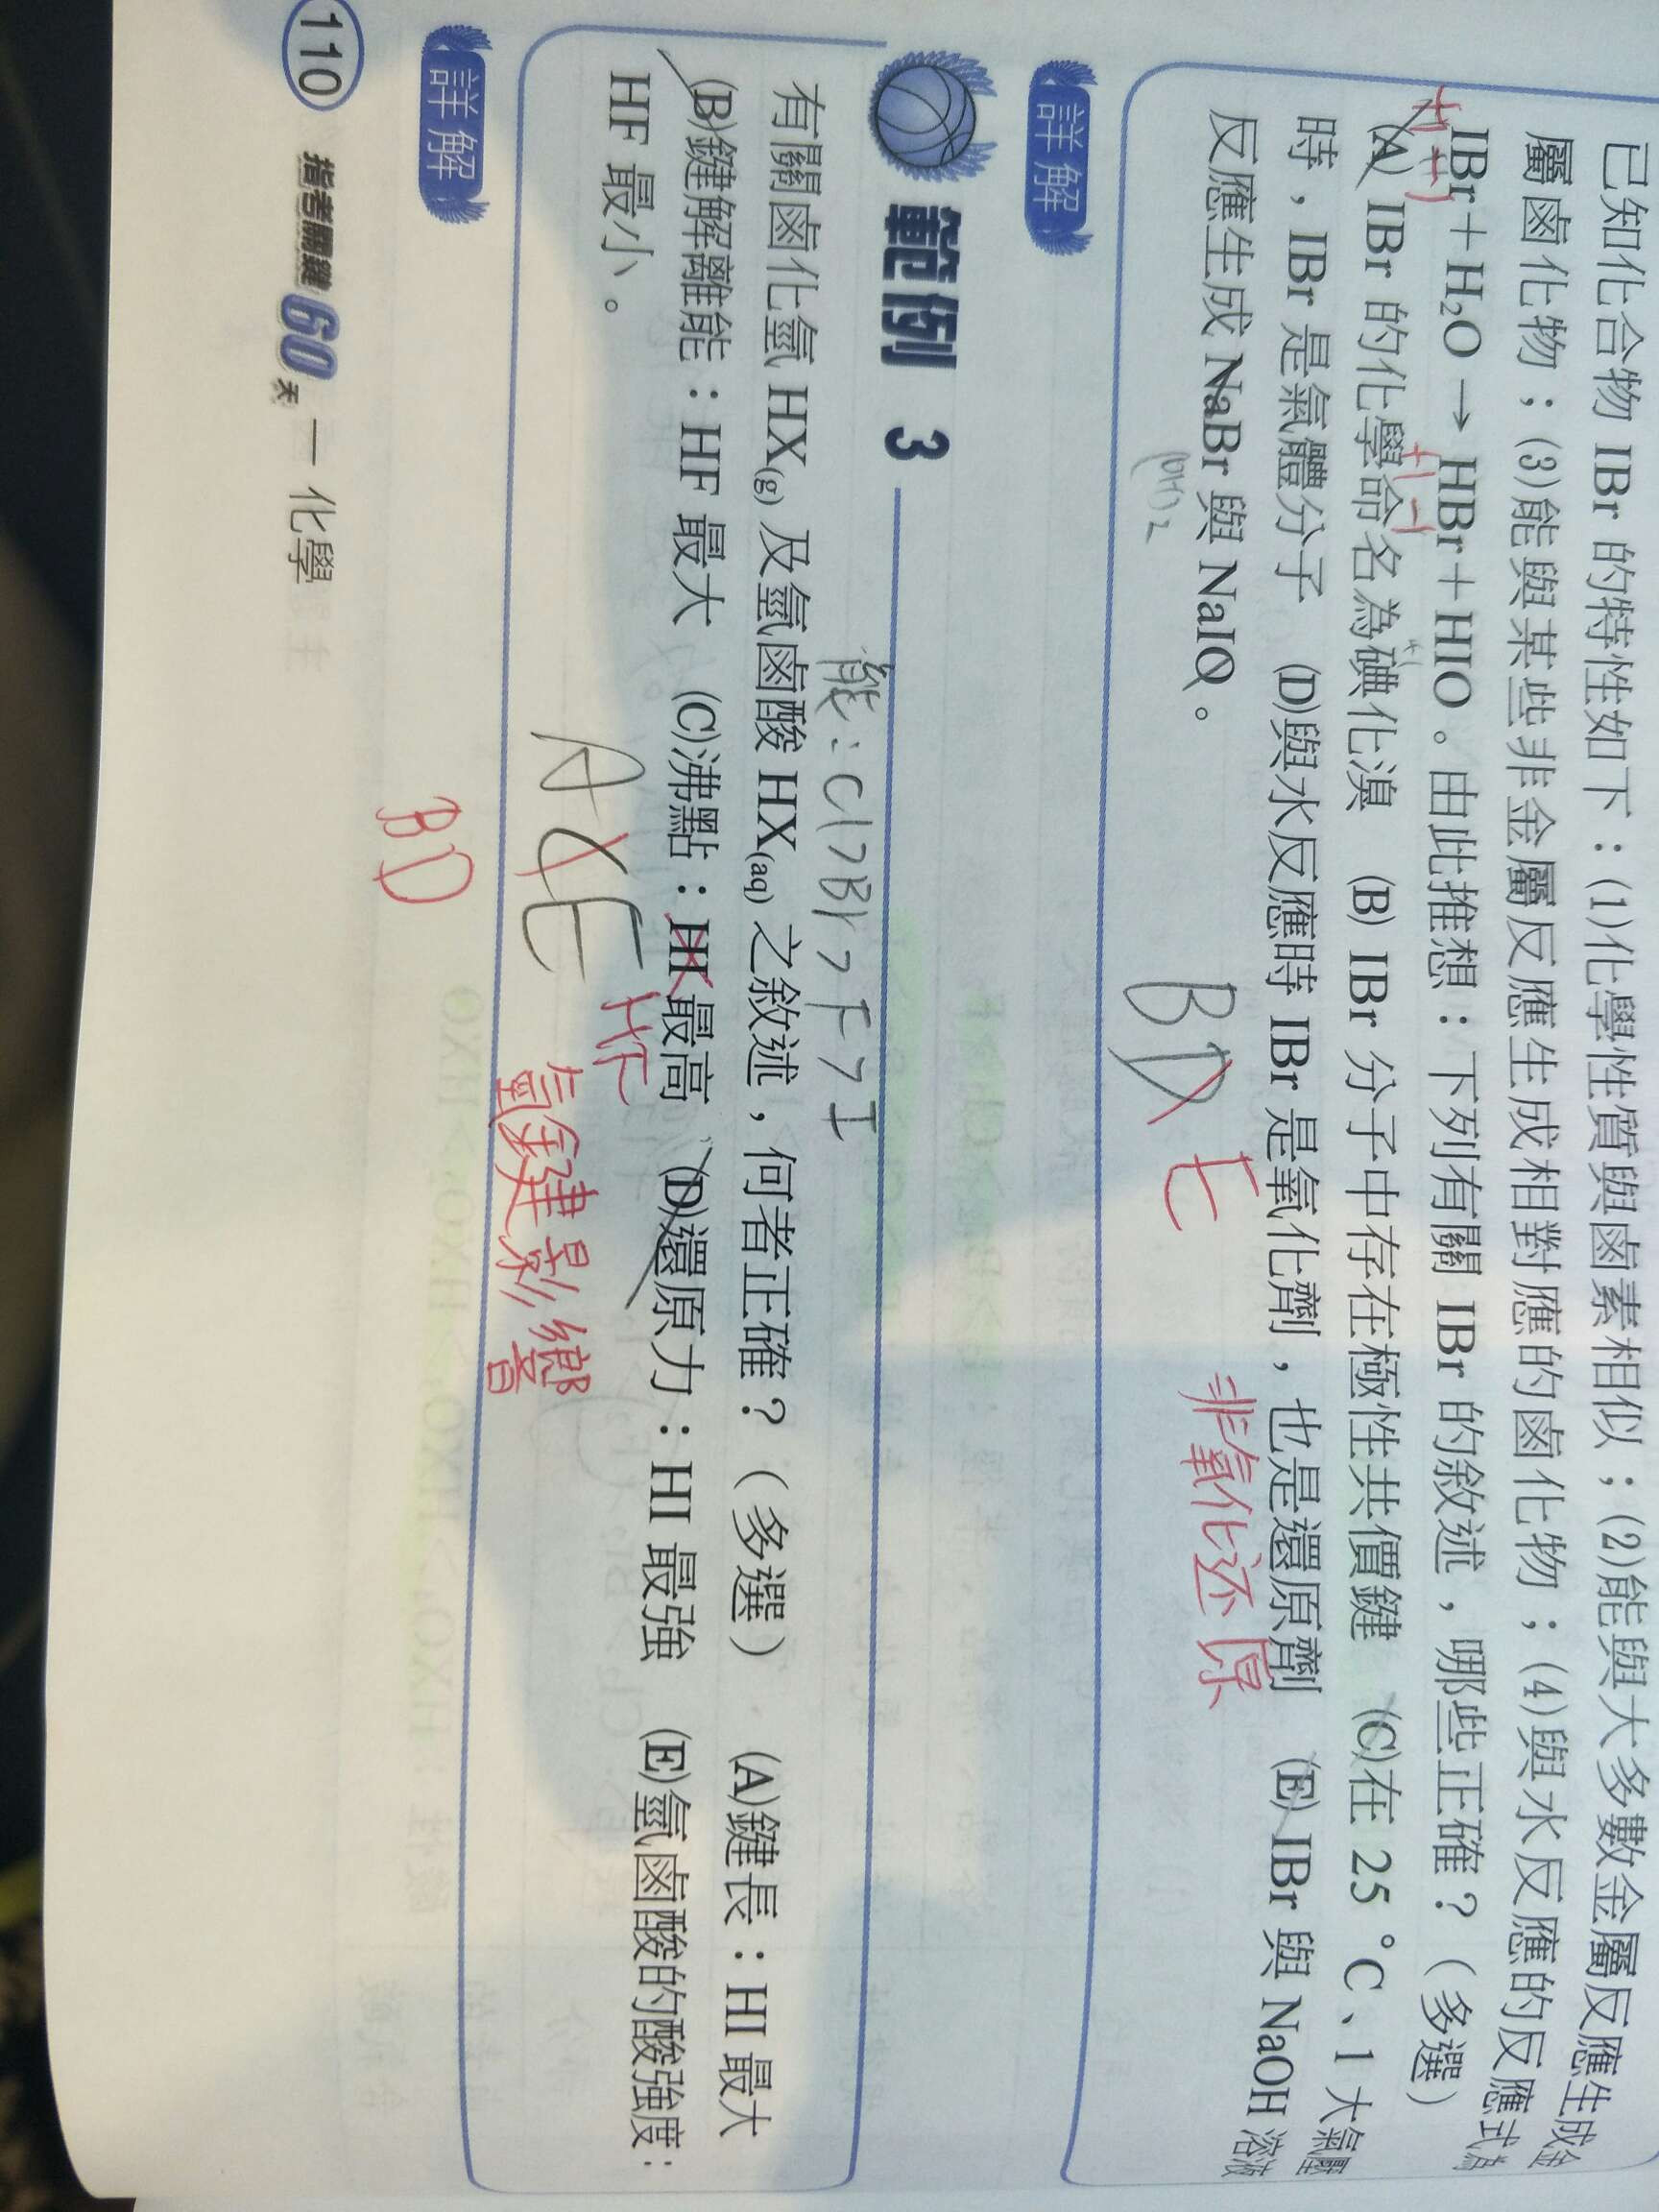 已知化合物 IBr 的特性如下：(1)化學性質與鹵素相似；(2)能與大多數金屬反應生成金
屬鹵化物；(3)能與某些非金屬反應生成相對應的鹵化物；(4)與水反應的反應式為
IBr＋H₂O → HBr＋HIO。由此推想：下列有關 IBr 的敘述，哪些正確？（多選）
+1 -1
+1 -1
+1
(A) IBr 的化學命名為碘化溴 (B) IBr 分子中存在極性共價鍵 (C)在 25 °C、1 大氣壓
時，IBr 是氣體分子 (D)與水反應時 IBr 是氧化劑，也是還原劑 (E) IBr 與 NaOH 溶液
反應生成 NaBr 與 NaIO。
(OH)₂
BD E
非氧化还原
詳解
範例 3
能：Cl>Br>F>I
有關鹵化氫 HX(g) 及氫鹵酸 HX(aq) 之敘述，何者正確？（多選） (A)鍵長：HI 最大
(B)鍵解離能：HF 最大 (C)沸點：HI 最高 (D)還原力：HI 最強 (E)氫鹵酸的酸強度：
HF 最小。
HF
氫鍵影響
ACE
BD
詳解
110 指考關鍵60天 — 化學